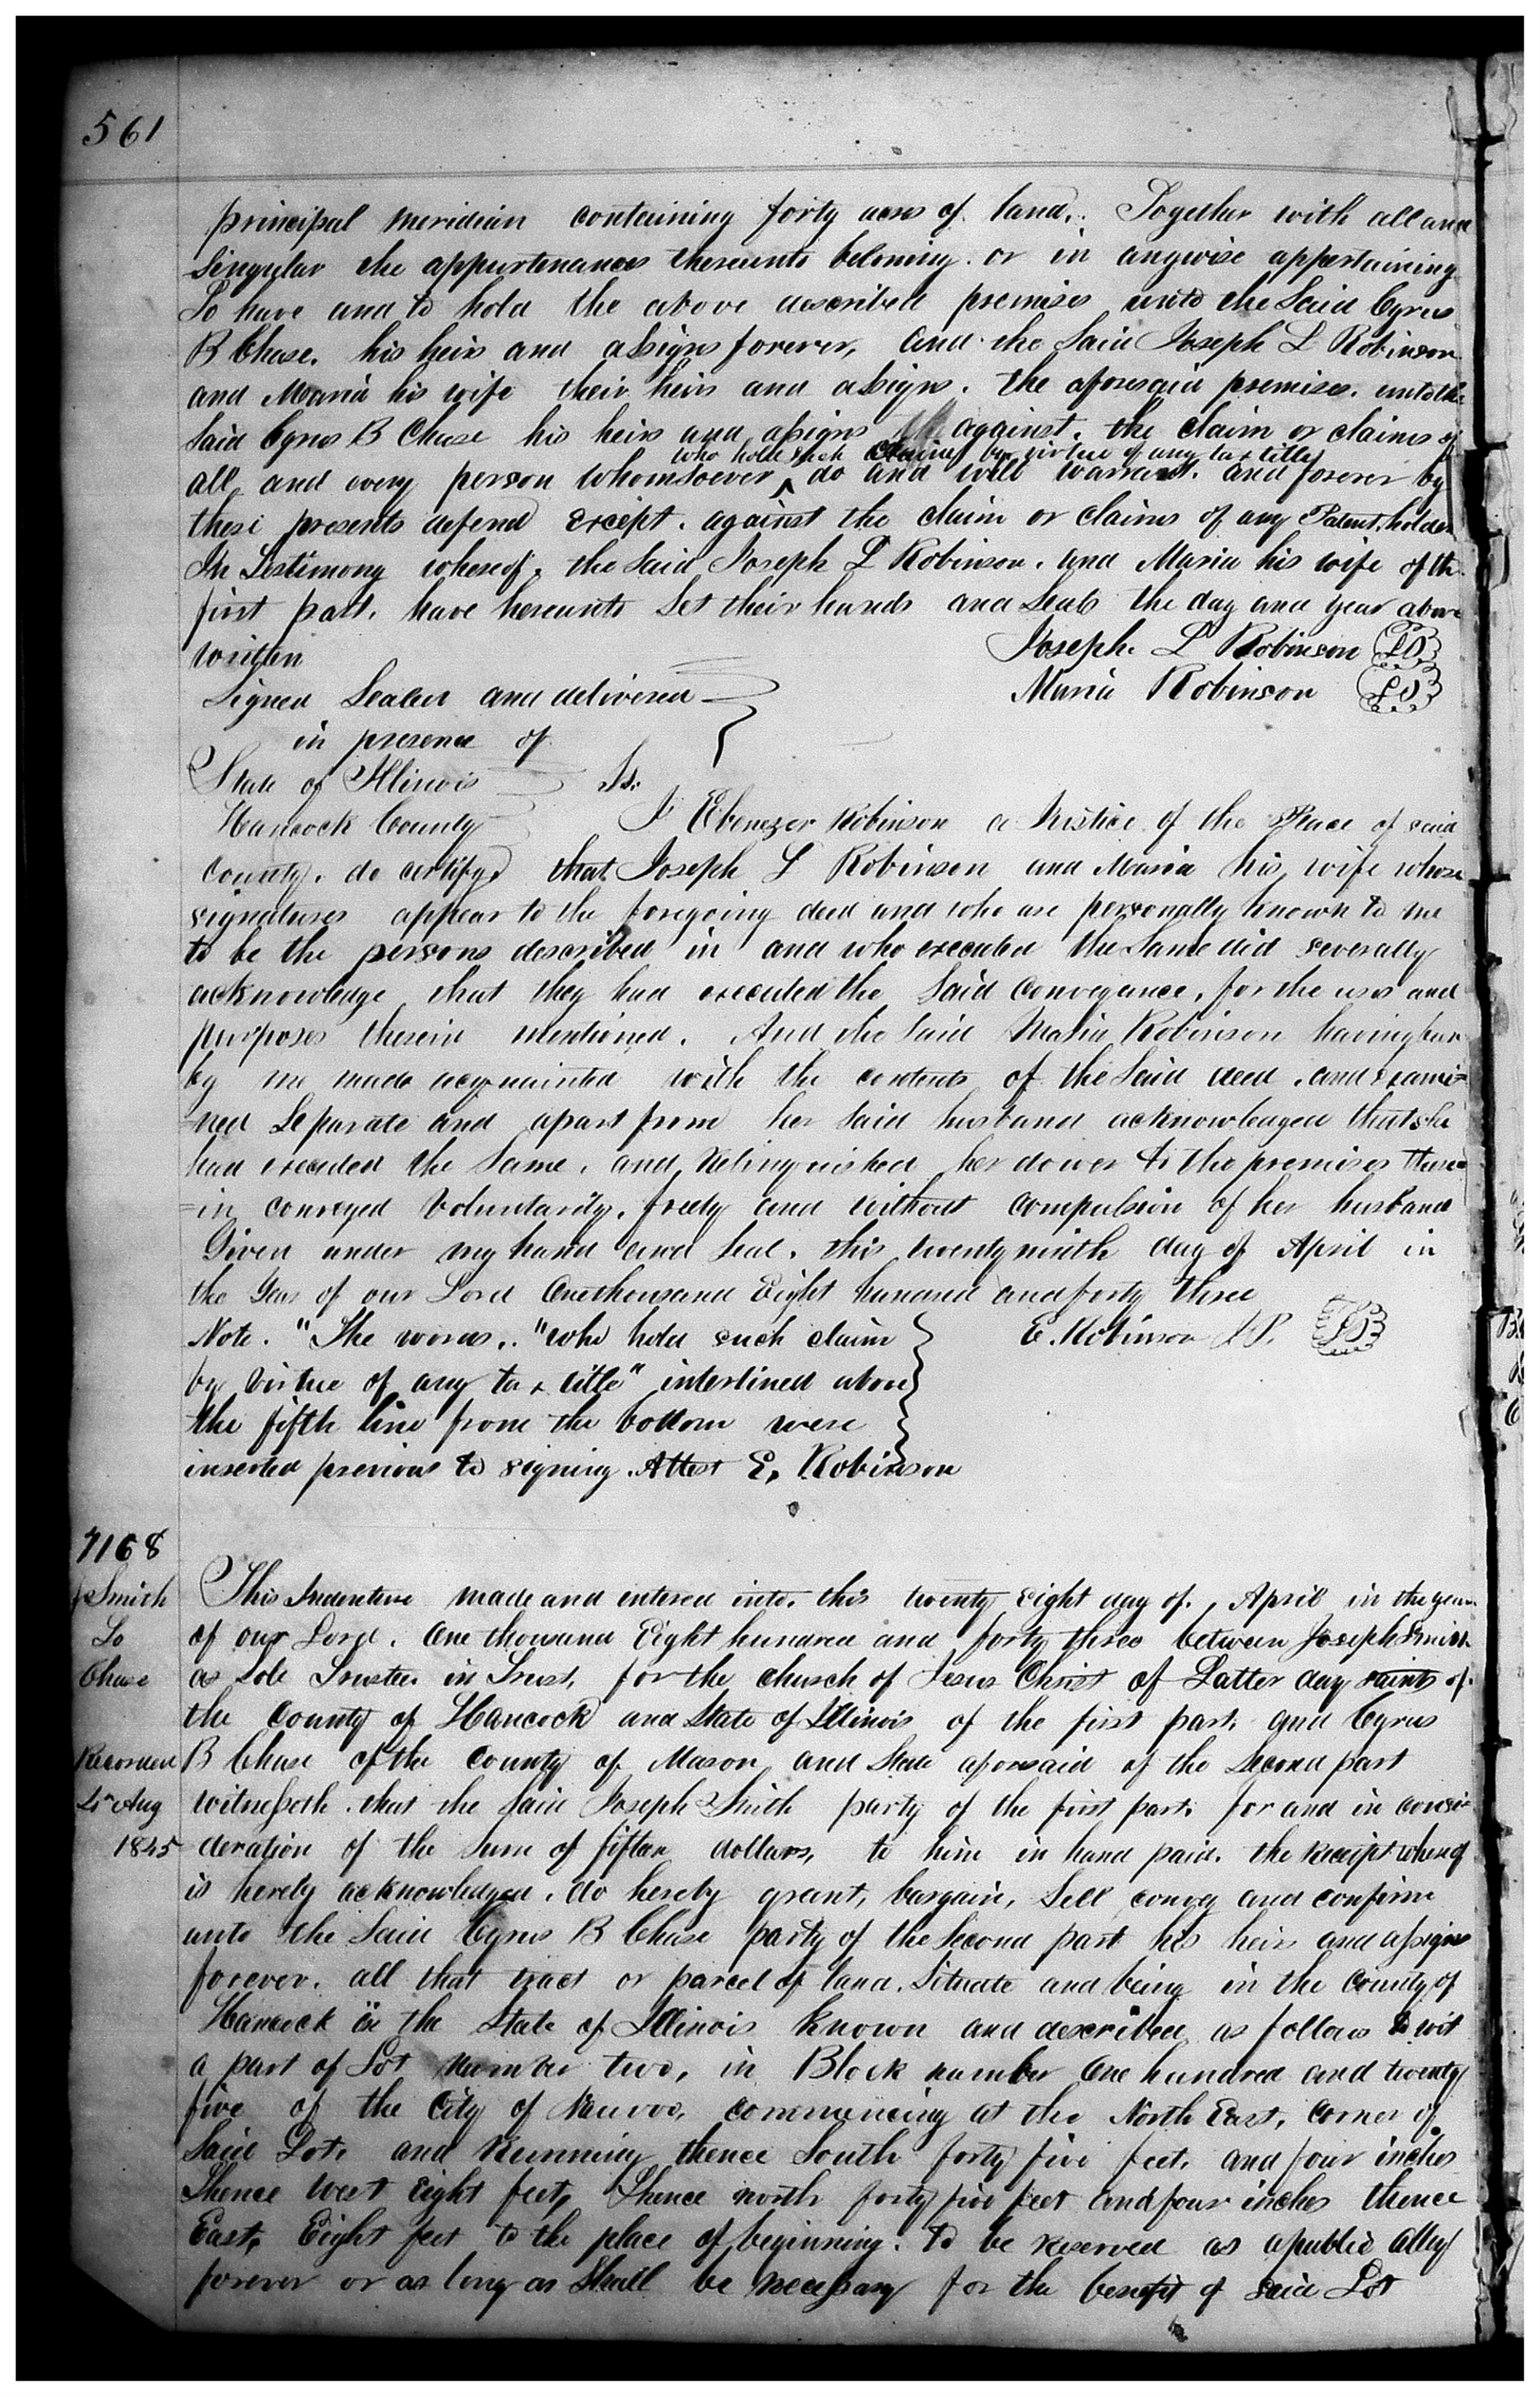 561
principal meridian containing forty acres of land. Together with all and
Singular the appurtenances thereunto beloning. or in anywise appertaining
To have and to hold the above described premises unto the Said Cyrus
B Chase. his heirs and assigns forever, and the Said Joseph L Robinson
and Maria his wife their heirs and assigns. the aforesaid premises. unto the
Said Cyrus B Chase his heirs and assigns against. the claim or claims of
who hold such claims by virtue of any tax title
all and every person whomsoever ^ do and will warrant. and forever by
these presents defend except. against the claim or claims of any Patent holder
In Testimony whereof, the Said Joseph L Robinson. and Maria his wife of the
first part. have hereunto Set their hands and Seals the day and year above
written
Joseph. L Robinson LS
Signed Sealed and delivered
Maria Robinson LS
in presence of
State of Illinois Ss.
Hancock County I Ebenezer Robinson a Justice of the Peace of said
County. do certify that Joseph L Robinson and Maria his wife whose
signatures appear to the foregoing deed and who are personally known to me
to be the persons described in and who executed the Same did severally
acknowledge that they had executed the Said Conveyance, for the uses and
purposes therein mentioned. And the Said Maria Robinson having been
by me made acquainted with the contents of the Said deed. and Exami=
=ned Separate and apart from her Said husband acknowledged that she
had executed the Same. and Relinquished her dower to the premises there=
=in conveyed Voluntarily. freely and without compulsion of her husband
Given under my hand and Seal. this twenty ninth day of April in
the Year of our Lord One thousand Eight hundred and forty three
Note. "The words.. "who hold such claim
E. Robinson J.P. LS
by virtue of any tax title" interlined above
the fifth line from the bottom were
inserted previous to signing. Attest E. Robinson
7168
J Smith
To
Chase
Recorded
Aug
1845
This Indenture made and entered into. this twenty eight day of. April in the year
of our Lord. One thousand Eight hundred and forty three between Joseph Smith
as Sole Trustee in Trust, for the church of Jesus Christ of Latter day saints of.
the County of Hancock and State of Illinois of the first part. and Cyrus
B Chase of the County of Mason and State aforesaid of the Second part
witnesseth. that the Said Joseph Smith party of the first part. for and in consi=
deration of the Sum of fifteen dollars, to him in hand paid. the Receipt whereof
is hereby acknowledged. do hereby grant, bargain, Sell convey and confirm
unto the Said Cyrus B Chase party of the Second part his heirs and assigns
forever. all that tract or parcel of land. Situate and being in the County of
Hancock in the State of Illinois known and described as follows to wit
a part of Lot Number two, in Block number One hundred and twenty
five of the City of Nauvoo, commencing at the North East, corner of
Said Lot. and Running thence South forty five feet. and four inches
Thence West Eight feet, Thence north forty five feet and four inches thence
East, Eight feet to the place of beginning. To be Reserved as a public alley
forever or as long as Shall be necessary for the benefit of said Lot